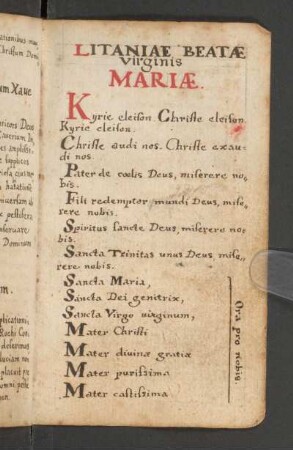 ationibus
Christum Domi
um Xave
LITANIAE BEATÆ
Virginis
MARIÆ.
Kyrie eleison. Christe eleison.
Kyrie eleison.
Christe audi nos. Christe exau-
di nos.
Pater de cœlis Deus, miserere no-
bis.
Fili redemptor mundi Deus, mise-
rere nobis.
Spiritus sancte Deus, miserere no-
bis.
Sancta Trinitas unus Deus mise-
rere nobis.
Sancta Maria,
Sancta Dei genitrix,
Sancta Virgo virginum,
Mater Christi
Mater divinæ gratiæ
Mater purissima
Mater castissima
Ora pro nobis.